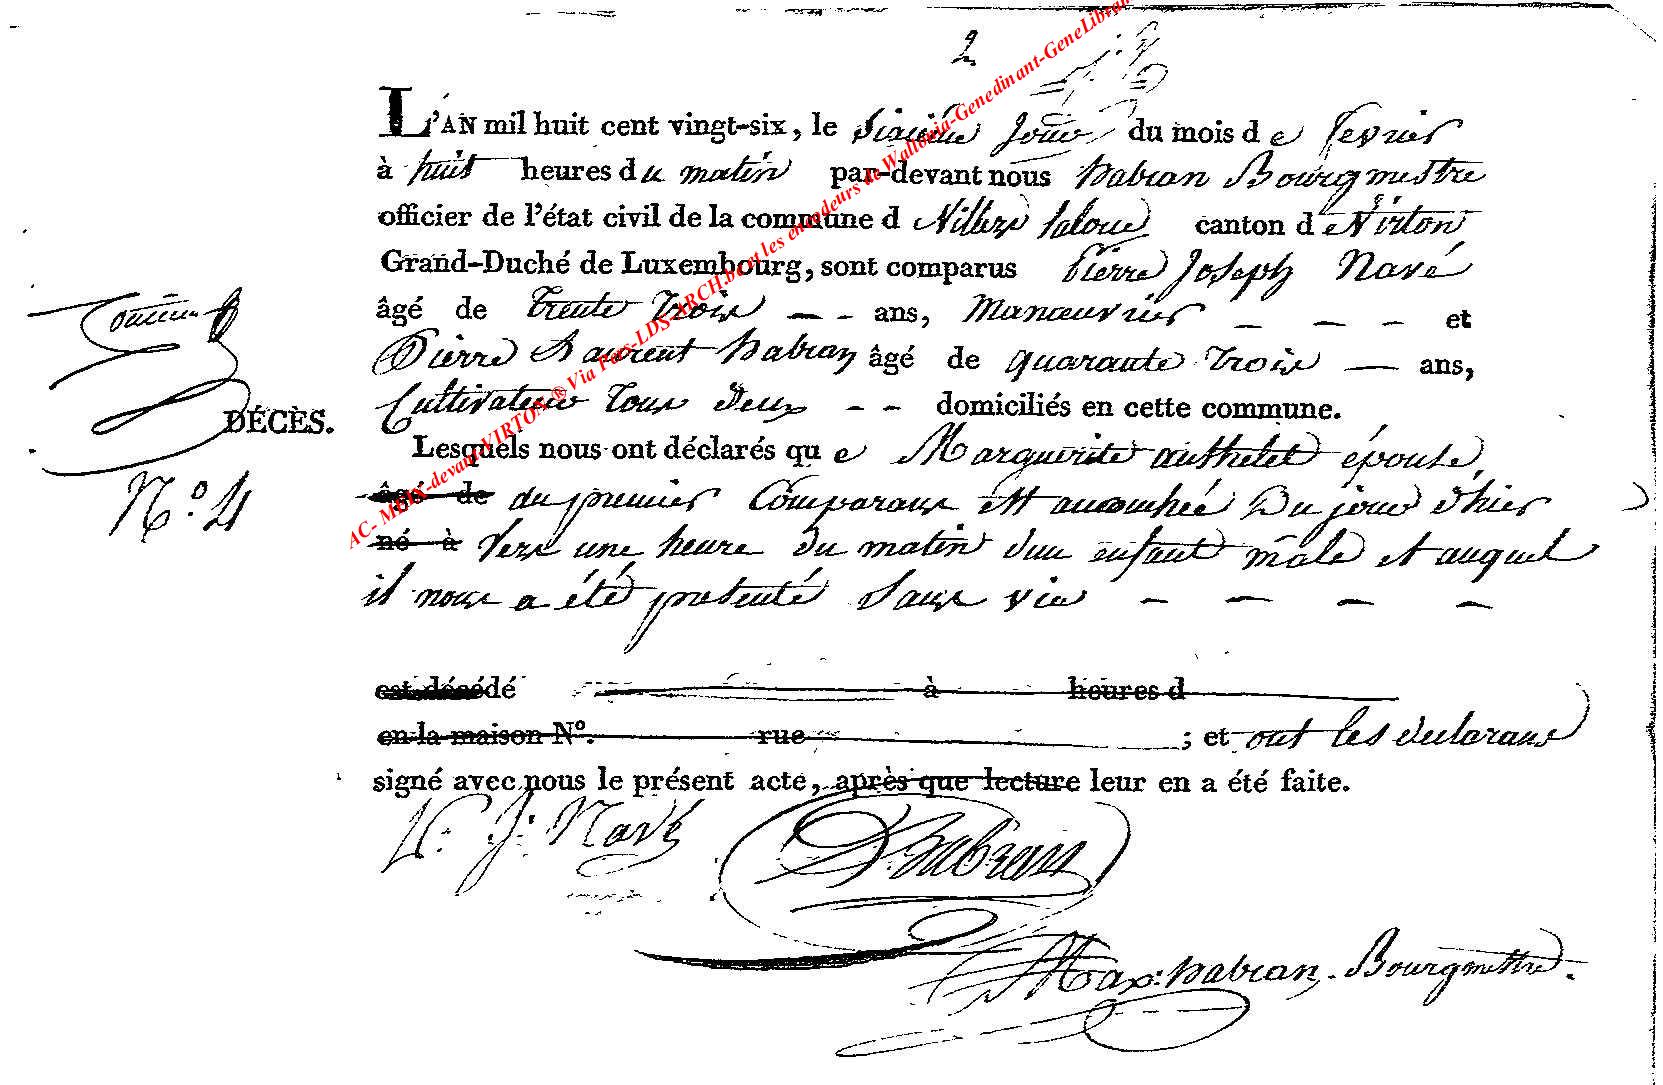 2
L'AN mil huit cent vingt-six, le Sixième Jour du mois de fevrier
à huit heures du matin par-devant nous habran Bourgmestre
officier de l'état civil de la commune d Villers laloue canton de Virton
Grand-Duché de Luxembourg, sont comparus Pierre Joseph Navé
âgé de Trente Trois ans, Manœuvrier et
Pierre Laurent habran âgé de quarante Trois ans,
Cultivateur Tous deux domiciliés en cette commune.
DÉCÈS.
N.º 4
Lesquels nous ont déclarés que Marguerite authelet épouse
âgé de du premier Comparans est accouchée Du jour d'hier
né à Vers une heure du matin d'un enfant mâle et auquel
il nous a été presenté Sans vie
est décédé à heures d
en la maison Nº. rue ; et ont les declarans
signé avec nous le présent acte, après que lecture leur en a été faite.
J: Navé
habran
Max: habran. Bourgmestre.
AC- MEIX-devant-VIRTON ® Via Pars-LDS-ARCH.be et les encodeurs de Wallonia-Genedinant-GeneLibran